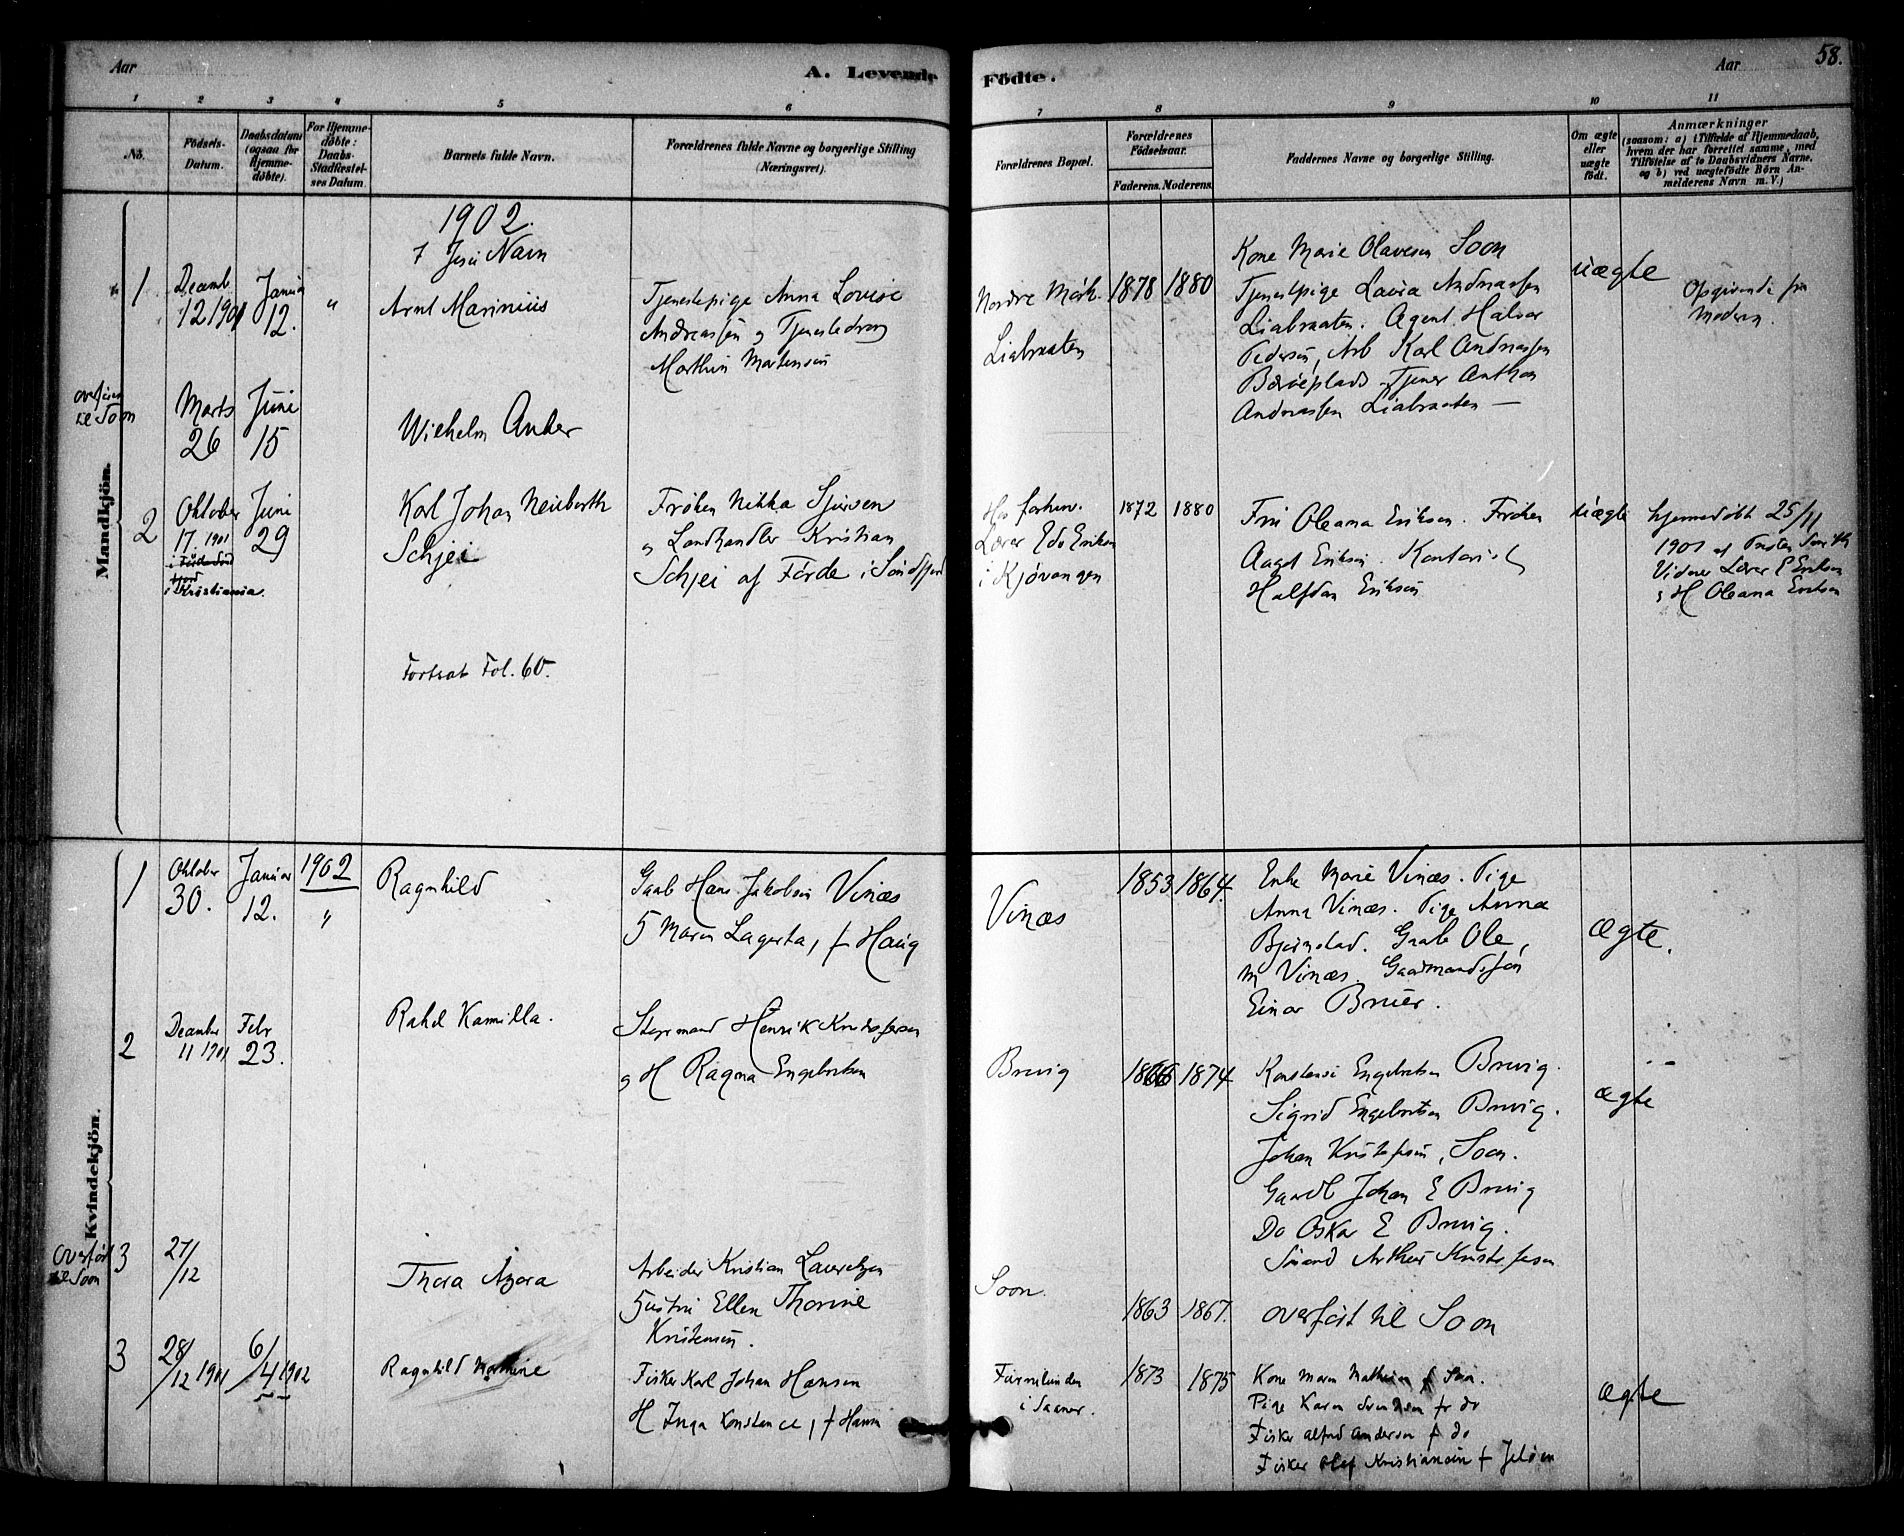 Aar
A. Levende
Födte.
Aar
58.
1 2 3 4 5 6 7 8 9 10 11
No.
Födsels-
Datum.
Daabsdatum
(ogsaa for
Hjemme-
döbte).
For Hjemme-
döbte:
Daabs-
Stadfæstel-
ses Datum.
Barnets fulde Navn.
Forældrenes fulde Navne og borgerlige Stilling
(Næringsvei).
Forældrenes Bopæl.
Forældrenes
Födselsaar.
Faderens. Moderens.
Faddernes Navne og borgerlige Stilling.
Om ægte
eller
uægte
födt.
Anmærkninger
(saasom: a) i Tilfælde af Hjemmedaab,
hvem der har forrettet samme, med
Tilföielse af to Daabsvidners Navne,
og b) ved uægtefödte Börn An-
melderens Navn m. V.)
Mandkjön.
1902.
I Jesu Navn
1
Decemb
12 1901
Januar
12.
"
Arnt Marinius
Tjenestepige Anna Lovise
Andreassen og Tjenestedreng
Marthin Martensen
Nordre Mørk.
Liabraaten
1878
1880
Kone Marie Olavesen Soon
Tjenestpige Laura Andreassen
Liabraaten. Agent Halvor
Pedersen, Arb Karl Andreassen
Tjener Anthon
Andreassen Liabraaten
uægte
Opgivende fra
Modern.
overført
til Soon
Marts
26
Juni
15
Wilhelm Anker
2
Oktober
17 1901
i Kristiania.
Juni
29
Karl Johan Neuberth
Schjei
Frøken Nikka Sjursen
og Landhandler Kristian
Schjei af Førde i Søndfjord
Hos forhenv.
Lærer Edv Eriksen
i Kjøvangen
1872
1880
Fru Oleana Eriksen. Frøken
Aagot Eriksen. Kontorist
Halfdan Eriksen
uægte
hjemmedøbt 25/11
1901 af
Vidner Lærer E Eriksen
og H Oleana Eriksen
Fortsat Fol. 60.
Kvindekjön.
1
Oktober
30.
Januar
12.
1902
"
Ragnhild
Gaab Hans Jakobsen Vinæs
Maren Lagerta, f Haug
Vinæs
1853
1864.
Enke Marie Vinæs. Pige
Anna Vinæs. Pige Anna
Bjørnstad. Gaab Ole,
Vinæs. Gaardmandssøn
Einar Bruer.
ægte.
2
December
11 1901
Febr
23.
Rakel Kamilla.
Styrmand Henrik Kristofersen
og H Ragna Engebretsen
Brevig
1866
1874
Konstanse Engebretsen Brevig.
Sigrid Engebretsen Brevig.
Johan Kristofersen, Soon.
Gaardb Johan E Brevig
Do Oskar E Brevig.
Sømand Arthur Kristofersen
ægte
Overført
til Soon
3
27/12
Thora Azora
Arbeider Kristian Lauretzen
Hustru Ellen Thorine
Kristensen.
Soon.
1863
1867.
overført til Soon
3
28/12 1901
6/4 1902
Ragnhild Mathine
Fisker Karl Johan Hansen
H Inga Konstance, f Hansen
i Saaner.
1873
1875
Kone Maren Mathisen f Son.
Pige Karen Svendsen fr do
Fisker Alfred Andersen f do
Fisker Olaf Kristiansen f Jeløen
ægte